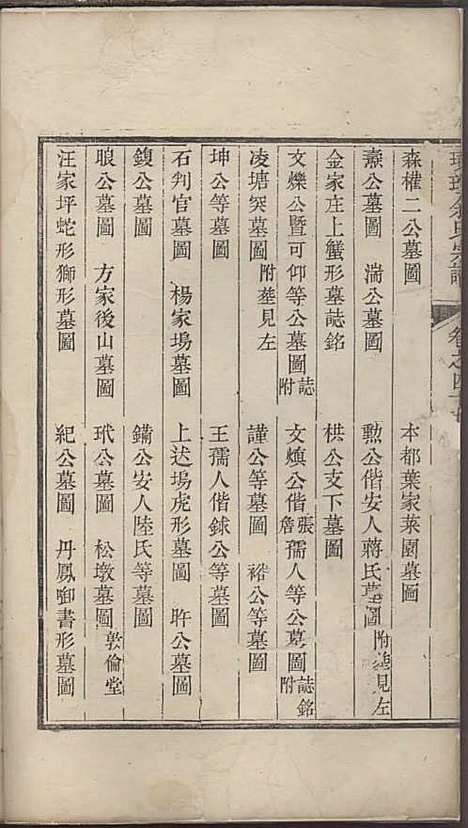 余氏宗譜 卷之四
森權二公墓圖 本都葉家菜園墓圖
燾公墓圖 湍公墓圖 勲公偕安人蔣氏墓圖附塟見左
金家庄上蟹形墓誌銘 栱公支下墓圖
文爍公暨可仰等公墓圖誌附 文煥公偕張詹孺人等公墓圖誌銘附
凌塘突墓圖附塟見左 謹公等墓圖 裕公等墓圖
坤公等墓圖 王孺人偕銶公等墓圖
石判官墓圖 楊家塢墓圖 上达塢虎形墓圖 旿公墓圖
鍑公墓圖 鏞公安人陸氏等墓圖
郎公墓圖 方家後山墓圖 玳公墓圖 松墩墓圖敦倫堂
汪家坪蛇形獅形墓圖 紀公墓圖 丹鳳啣書形墓圖